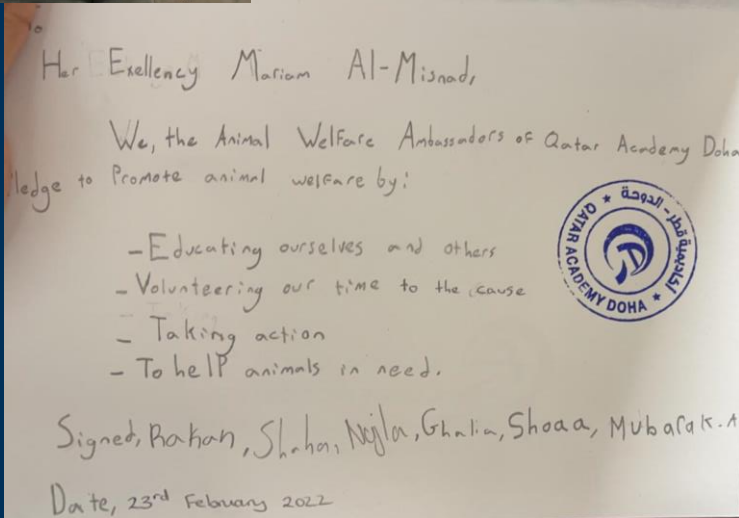 To
Her Exellency Mariam Al-Misnad,
We, the Animal Welfare Ambassadors of Qatar Academy Doha
ledge to Promote animal welfare by:
- Educating ourselves and others
- Volunteering our time to the cause
- Taking action
- To help animals in need.
أكاديمية قطر - الدوحة
QATAR ACADEMY DOHA
Signed, Rakan, Shaha, Nejla, Ghalia, Shoaa, Mubarak. A
Date, 23rd February 2022